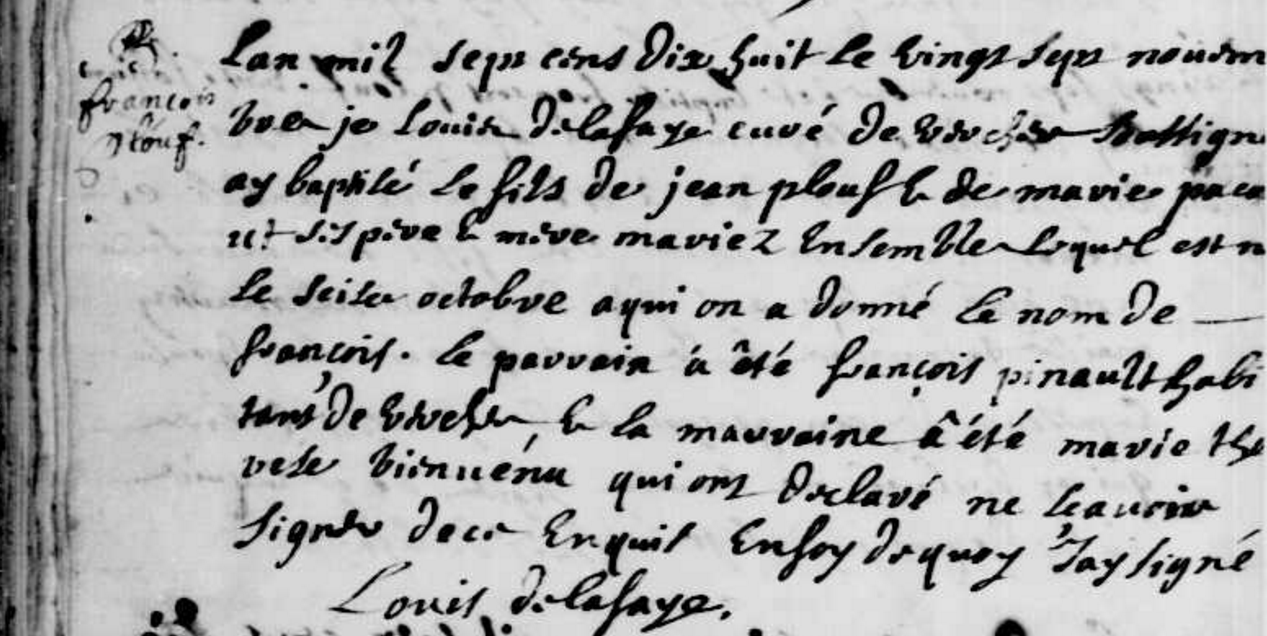 françois
plouf.
Lan mil sept cens dix huit le vingt sept novem
bre je Louis delafaye curé de vercher soussigne
ay baptisé le fils de jean plouf & de marie paca
ut ses pere & mere mariez Ensemble lequel est n
le seise octobre a qui on a donné le nom de
françois. le parrain a été françois pinault habi
tant de verchere & la marraine a été marie the
rese bienvenu qui ont declaré ne scavoir
signer de ce Enquis En foy de quoy J'ay signé
Louis delafaye.